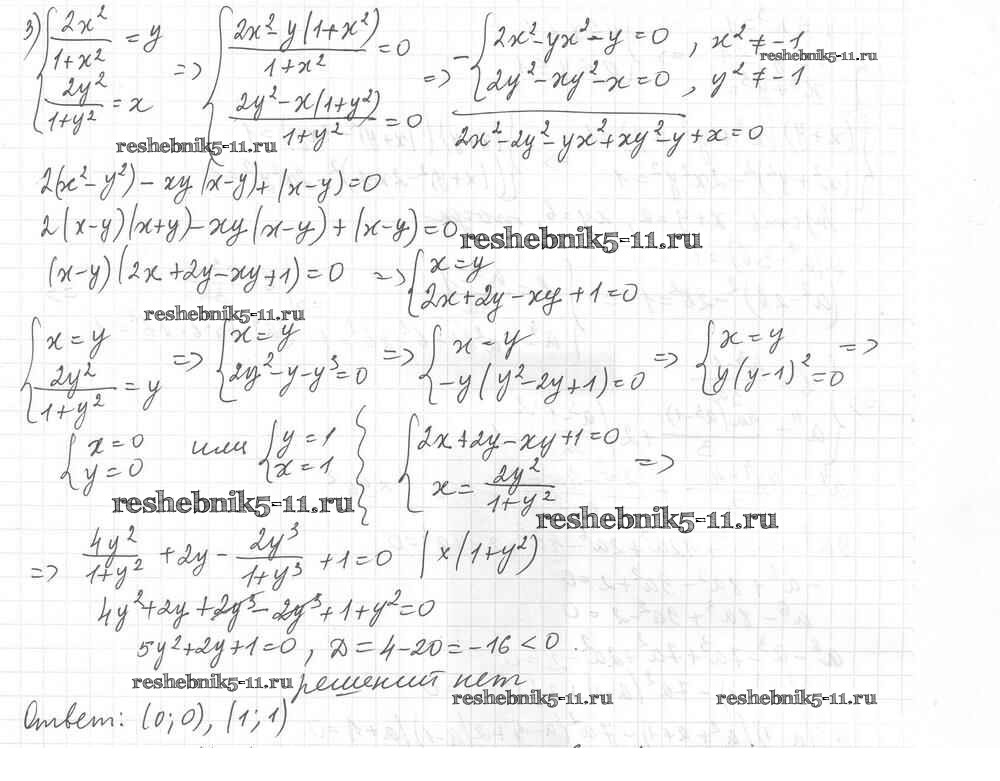 3) { 2x²/(1+x²) = y ; 2y²/(1+y²) = x => { (2x²-y(1+x²))/(1+x²) = 0 ; (2y²-x(1+y²))/(1+y²) = 0 => - { 2x²-yx²-y=0, x²≠-1 ; 2y²-xy²-x=0, y²≠-1
reshebnik5-11.ru
reshebnik5-11.ru
2x²-2y²-yx²+xy²-y+x=0
2(x²-y²)-xy(x-y)+(x-y)=0
2(x-y)(x+y)-xy(x-y)+(x-y)=0
reshebnik5-11.ru
(x-y)(2x+2y-xy+1)=0 => { x=y ; 2x+2y-xy+1=0
reshebnik5-11.ru
{ x=y ; 2y²/(1+y²) = y => { x=y ; 2y²-y-y³=0 => { x=y ; -y(y²-2y+1)=0 => { x=y ; y(y-1)²=0 =>
{ x=0 ; y=0 или { y=1 ; x=1 } { 2x+2y-xy+1=0 ; x = 2y²/(1+y²) =>
reshebnik5-11.ru
reshebnik5-11.ru
=> 4y²/(1+y²) + 2y - 2y³/(1+y³) + 1 = 0 | x(1+y²)
4y²+2y+2y³-2y³+1+y²=0
5y²+2y+1=0, D=4-20=-16<0.
reshebnik5-11.ru решений нет
reshebnik5-11.ru
reshebnik5-11.ru
Ответ: (0;0), (1;1)